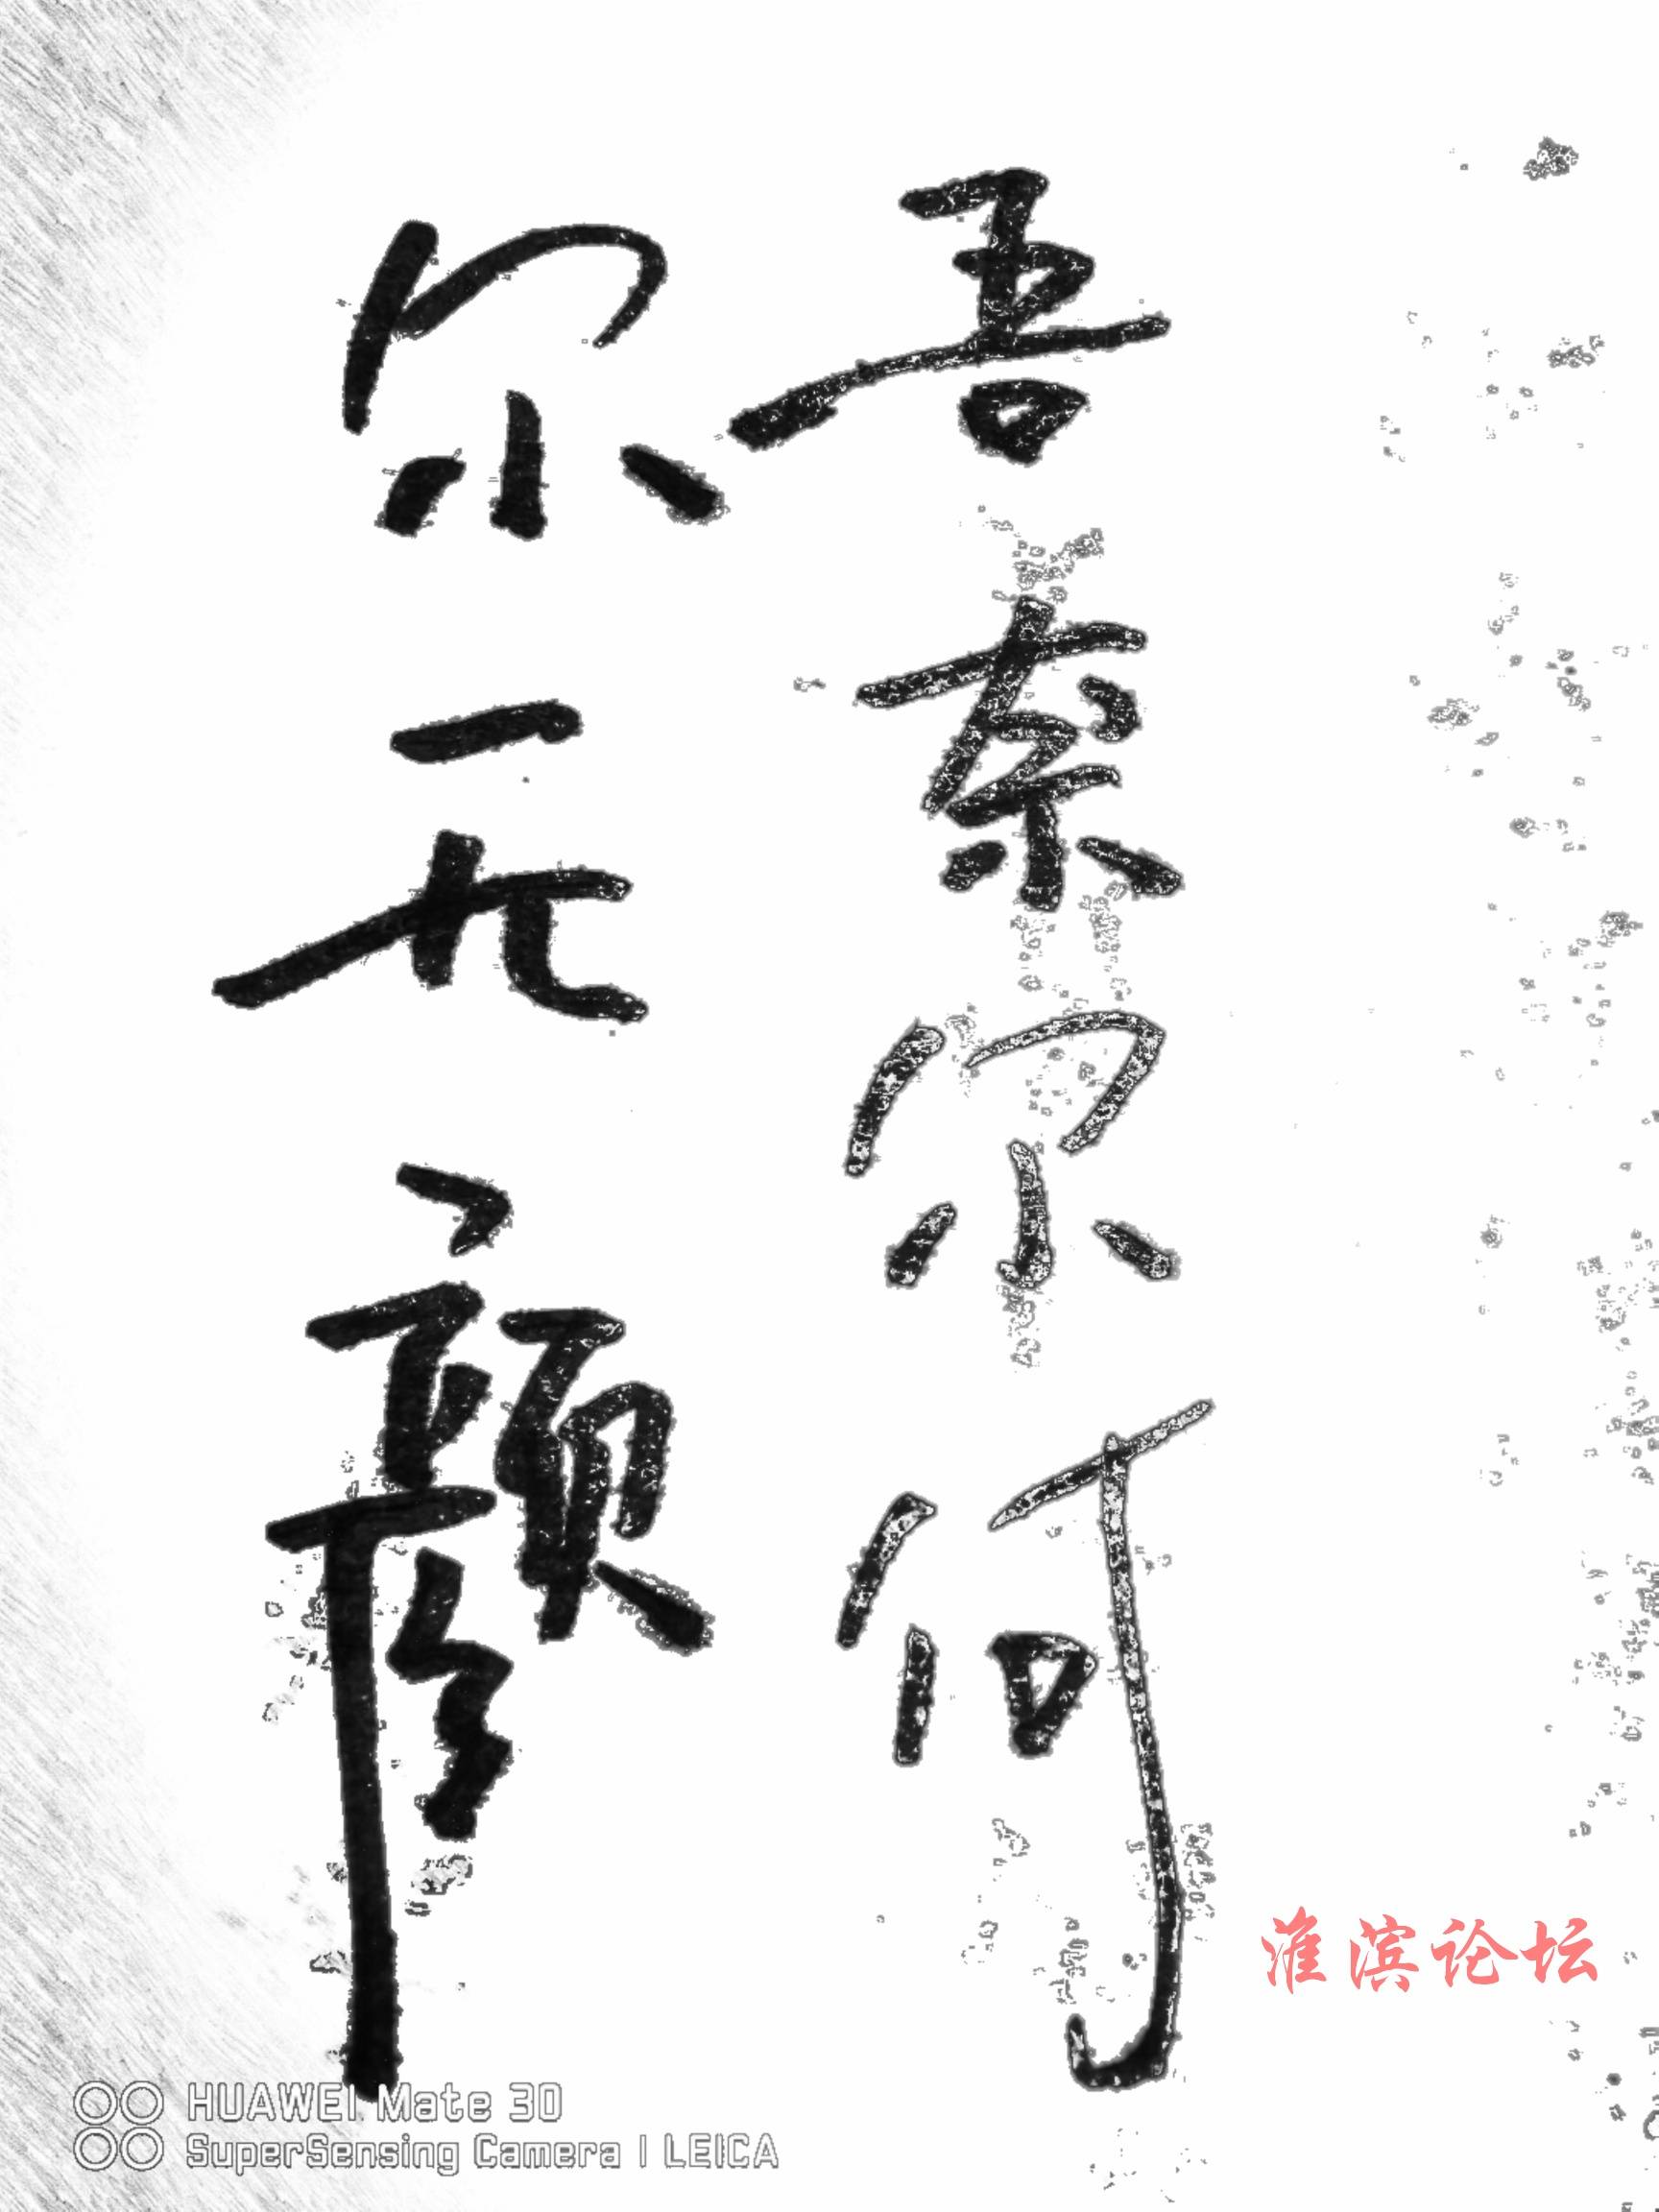 吾奈尔何
尔无颜
淮滨论坛
HUAWEI Mate 30
SuperSensing Camera | LEICA